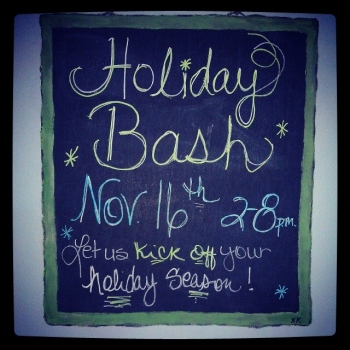 Holiday
Bash
Nov. 16th 2-8p.m.
Let us kick off your
holiday season!